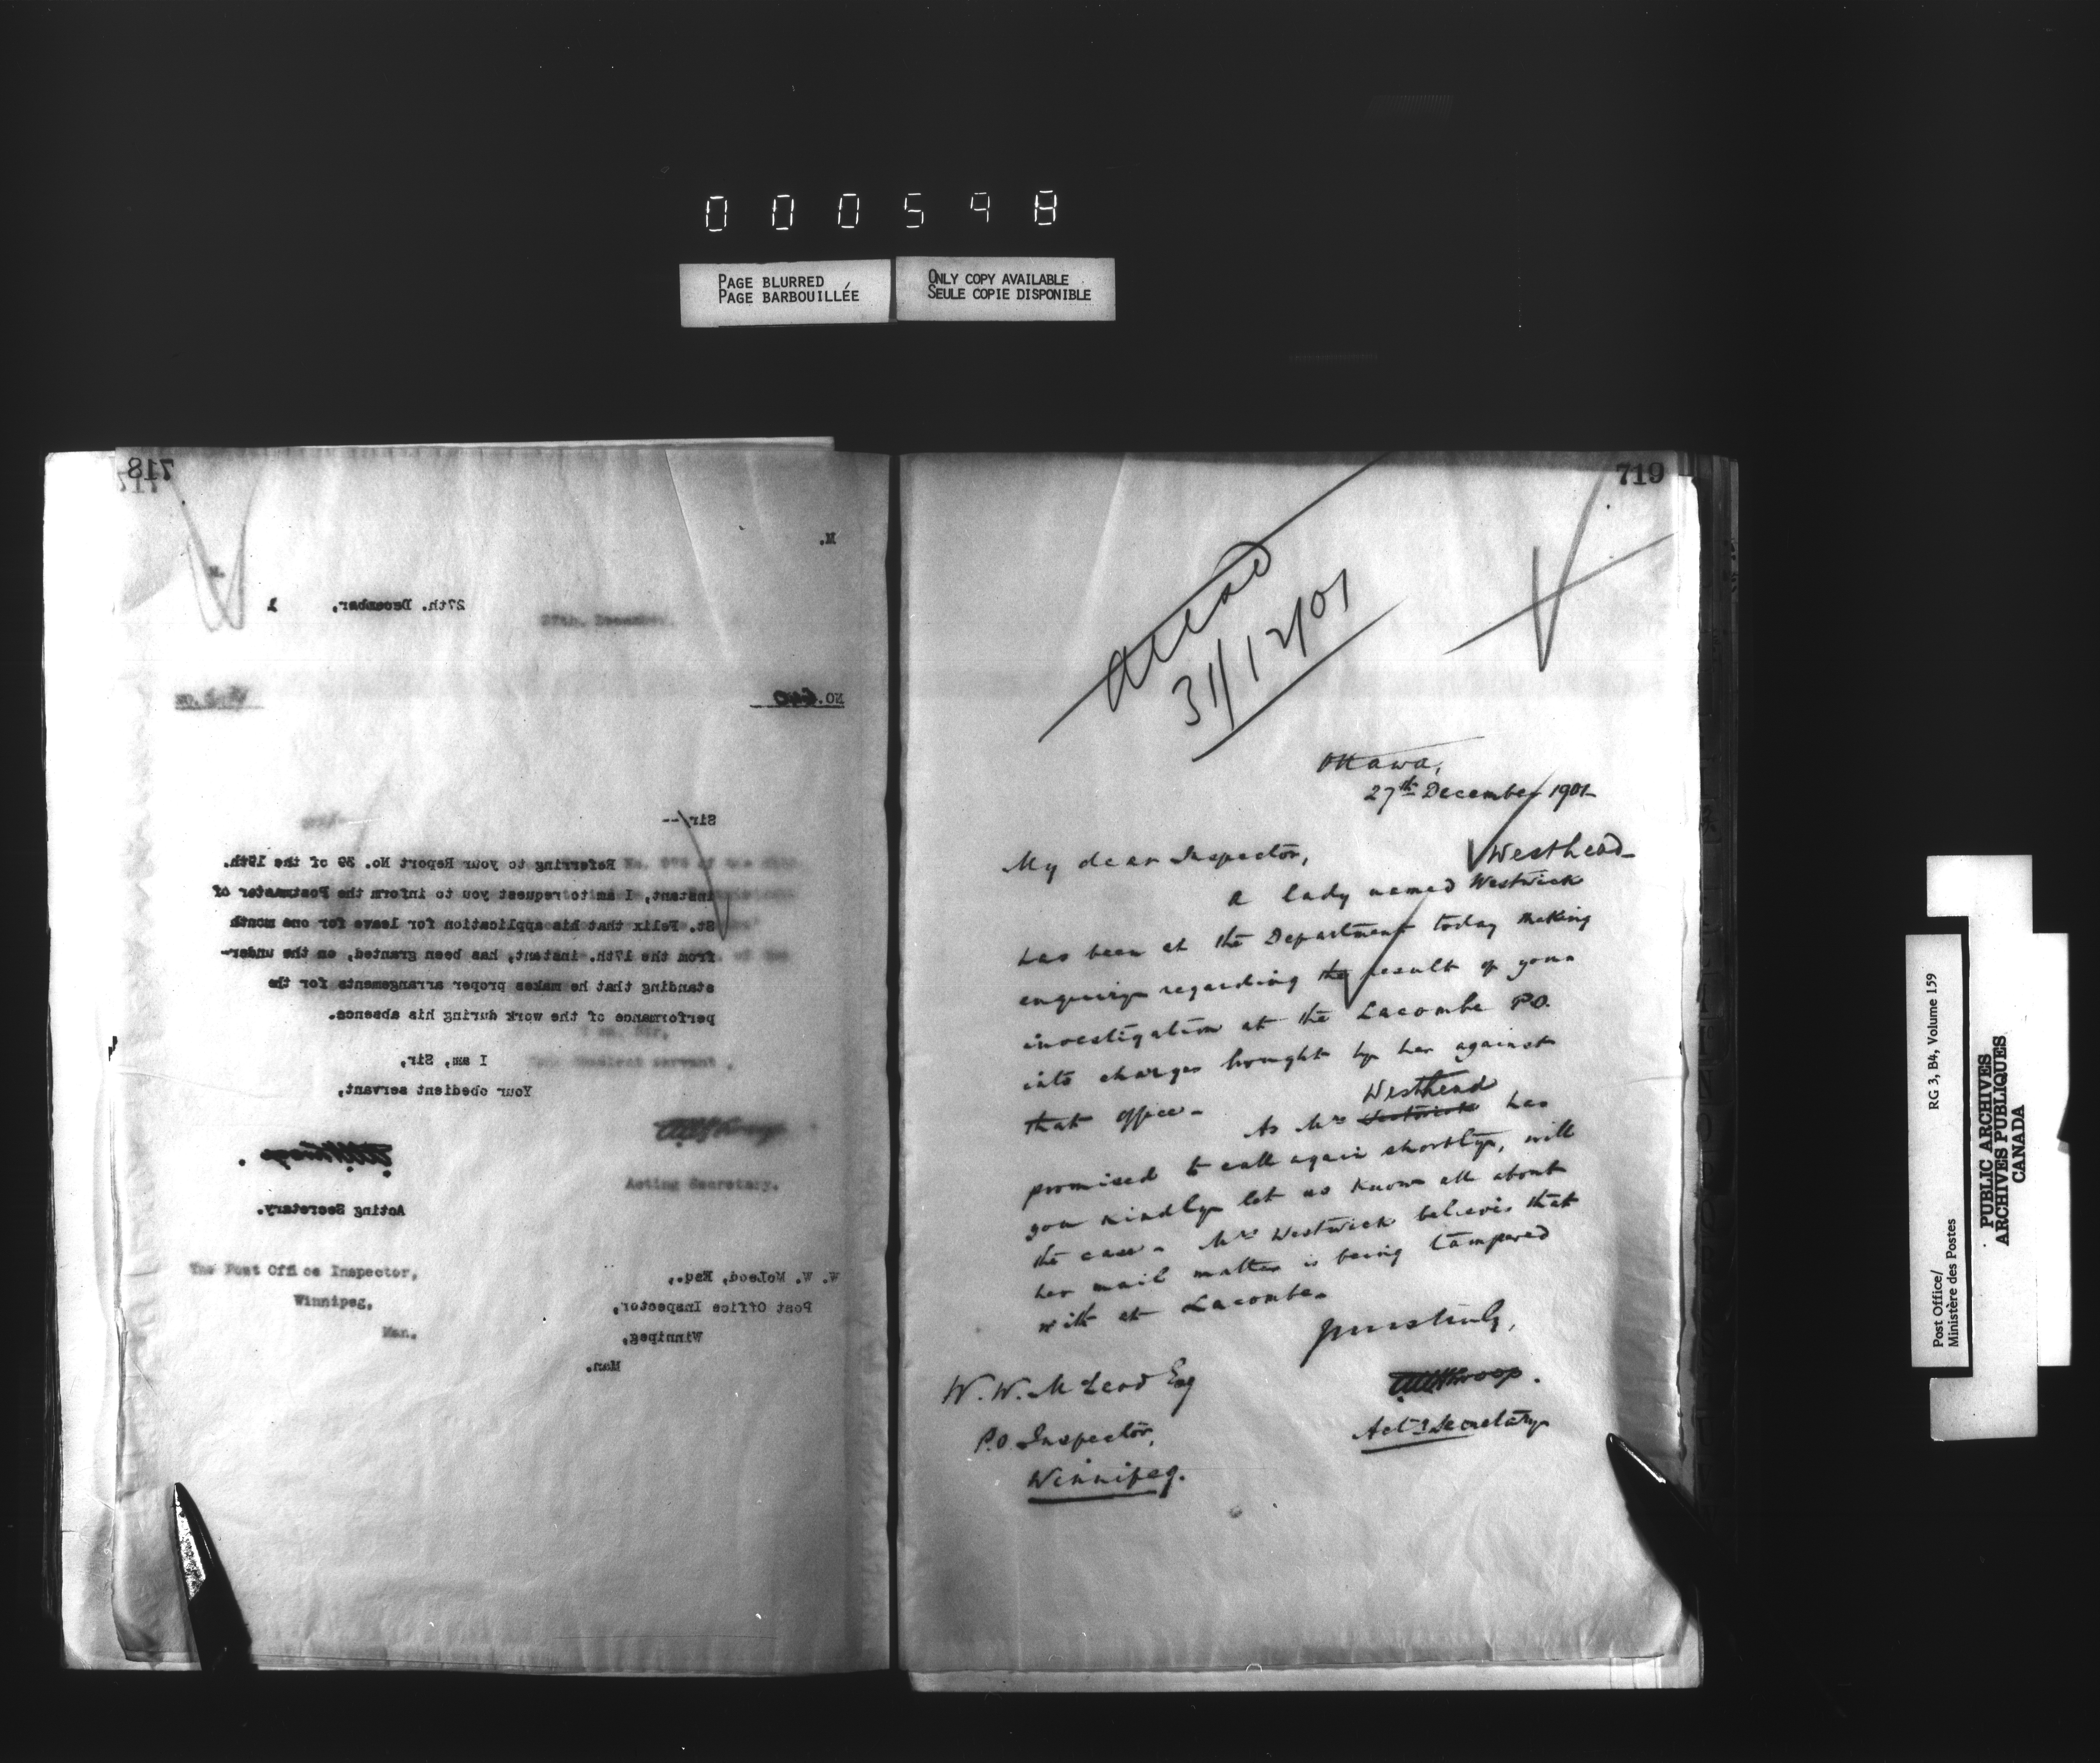 000598
PAGE BLURRED
PAGE BARBOUILLÉE
ONLY COPY AVAILABLE
SEULE COPIE DISPONIBLE
718
M.
27th. December, 1
NO. 640
Sir,--
Referring to your Report No. 39 of the 19th.
instant, I am to request you to inform the Postmaster of
St. Felix that his application for leave for one month
from the 17th. instant, has been granted, on the under-
standing that he makes proper arrangements for the
performance of the work during his absence.
I am, Sir,
Your obedient servant,
Acting Secretary.
W. W. McLeod, Esq.,
Post Office Inspector,
Winnipeg,
Man.
27th. December.
Acting Secretary.
The Post Office Inspector,
Winnipeg,
Man.
719
31/12/01
Ottawa,
27th December 1901
My dear Inspector,
Westhead
A lady named Westwick
has been at the Department today making
enquiry regarding the result of your
investigation at the Lacombe P.O.
into charges brought by her against
that office -
Westhead
As Mrs Westwick has
promised to call again shortly, will
you kindly let us know all about
the case - Mrs Westwick believes that
her mail matter is being tampered
with at Lacombe -
Yours truly,
W. W. McLeod Esq
P.O. Inspector,
Winnipeg.
Actg Secretary
Post Office/
Ministère des Postes
RG 3, B4, Volume 159
PUBLIC ARCHIVES
ARCHIVES PUBLIQUES
CANADA